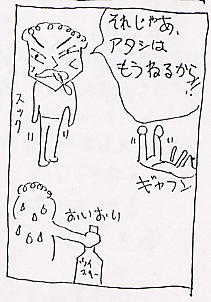 それじゃあ、
アタシは
もうねるから!!
スック
ギャフン
おいおい
ウイ
スキー